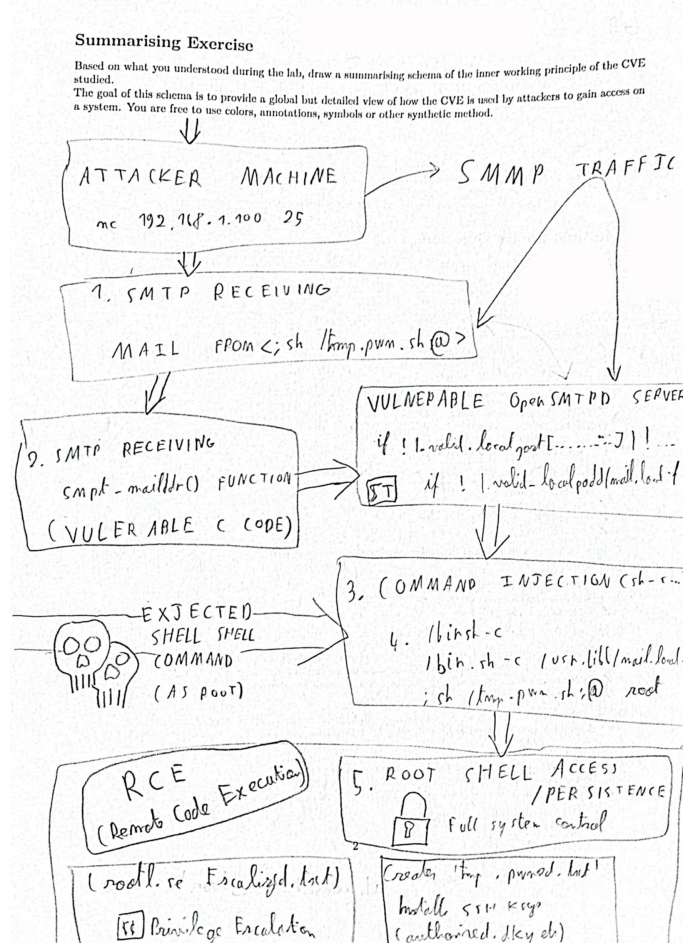 Summarising Exercise
Based on what you understood during the lab, draw a summarising schema of the inner working principle of the CVE
studied.
The goal of this schema is to provide a global but detailed view of how the CVE is used by attackers to gain access on
a system. You are free to use colors, annotations, symbols or other synthetic method.
ATTACKER MACHINE
nc 192.168.1.100 25
SMMP TRAFFIC
1. SMTP RECEIVING
MAIL FPOM <; sh /tmp.pwn.sh @>
2. SMTP RECEIVING
smpt-mailddr() FUNCTION
(VULERABLE C CODE)
VULNEPABLE OpenSMTPD SERVER
if !
if !
3. COMMAND INJECTION (sh-
4. /binsh-c
/bin.sh-c /usr.libl/mail.local
; sh /tmp.pwn.sh;@ root
EXJECTED
SHELL SHELL
COMMAND
(AS POOT)
RCE
(Remote Code Execution)
5. ROOT SHELL ACCESS
/PERSISTENCE
Full system control
2
Privilege Escalation
Install SSH